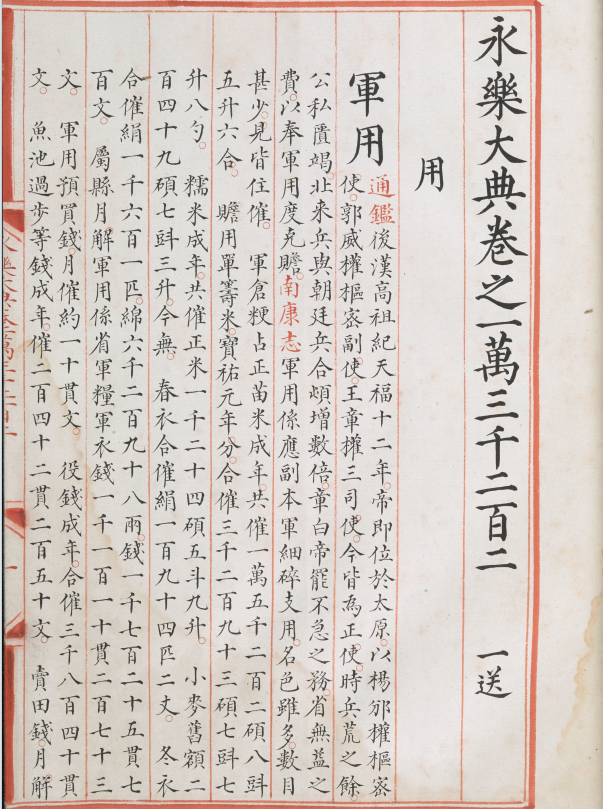 永樂大典卷之一萬三千二百二 一送
用
軍用
通鑑後漢高祖紀天福十二年。帝即位於太原。以楊邠權樞密
使。郭威權樞密副使。王章權三司使。今皆為正使。時兵荒之餘。
公私匱竭。北來兵與朝廷兵合。頓增數倍。章白帝罷不急之務。省無益之
費。以奉軍用度克贍。南康志軍用係應副本軍細碎支用。名色雖多。數目
甚少。見皆住催。 軍倉粳占正苗米成年。共催一萬五千二百二碩八㪷
五升六合。 贍用單籌米。寶祐元年分。合催三千二百九十三碩七㪷七
升八勺。 糯米成年。共催正米一千二十四碩五斗九升。 小麥舊額二
百四十九碩七㪷三升。今無。 春衣合催絹一百九十四匹二丈。 冬衣
合催絹一千六百一匹。綿六千二百九十八兩。錢一千七百二十五貫七
百文。 屬縣月解軍用係省軍糧軍衣錢一千一百一十貫二百七十三
文。 軍用預買錢。月催約一十貫文。 役錢成年。合催三千八百四十貫
文。 魚池過步等錢成年。催二百四十二貫二百五十文。 賣田錢。月解